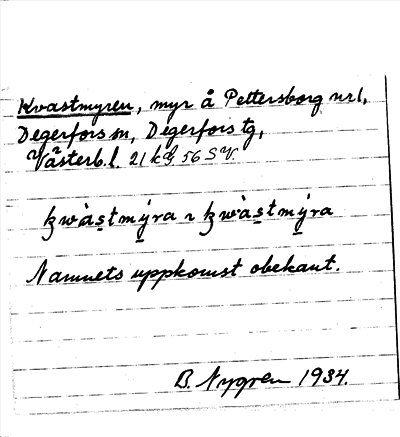 Kvastmyren, myr å Pettersborg nr 1,
Degerfors sn, Degerfors tg,
Västerb. l. 21 kg 56 SV.
kwàstmýra ~ kwàstmýra
Namnets uppkomst obekant.
B. Nygren 1934.